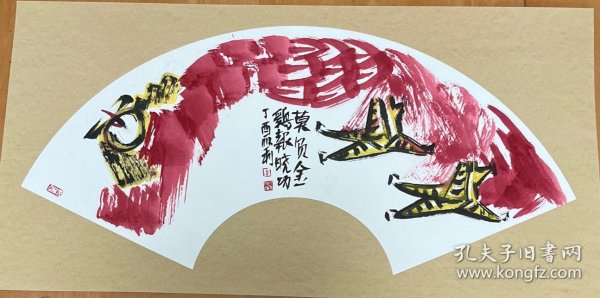 莫负金
鸡报晓功
丁酉欣利
孔夫子旧书网
www.kongfz.com